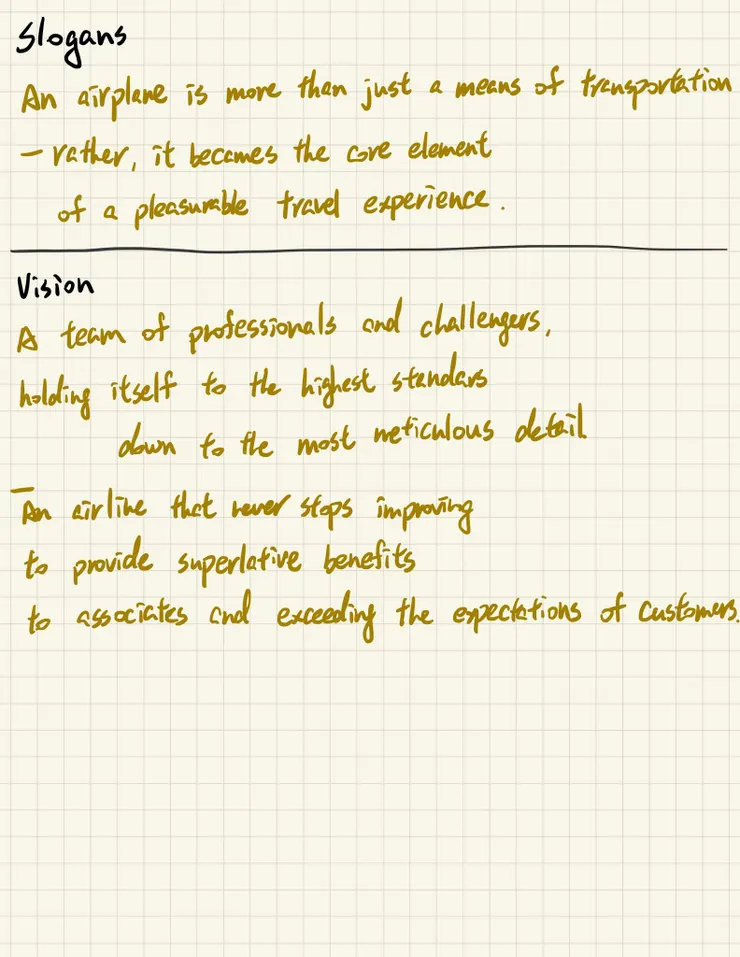 Slogans
An airplane is more than just a means of transportation
– rather, it becames the core element
of a pleasurable travel experience.
Vision
A team of professionals and challengers,
holding itself to the highest standars
down to the most meticulous detail
– An airline that never stops improving
to provide superlative benefits
to associates and exceeding the expectations of customers.